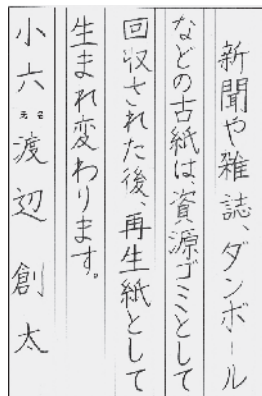 新聞や雑誌、ダンボール
などの古紙は、資源ゴミとして
回収された後、再生紙として
生まれ変わります。
小六 渡辺 創太